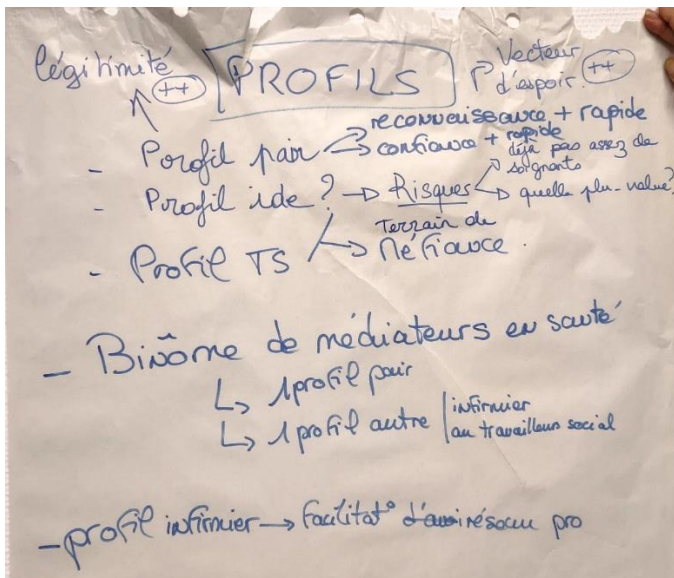 légitimité ++
PROFILS
Vecteur
d'espoir. ++
- Profil pair
reconnaissance + rapide
confiance + rapide
- Profil ide ? → Risques
déjà pas assez de
soignants
quelle plu-value?
- Profil TS
terrain de
Méfiance.
- Binôme de médiateurs en santé
↳ 1 profil pair
↳ 1 profil autre
infirmier
ou travailleur social
- profil infirmier → facilitat° réseau pro